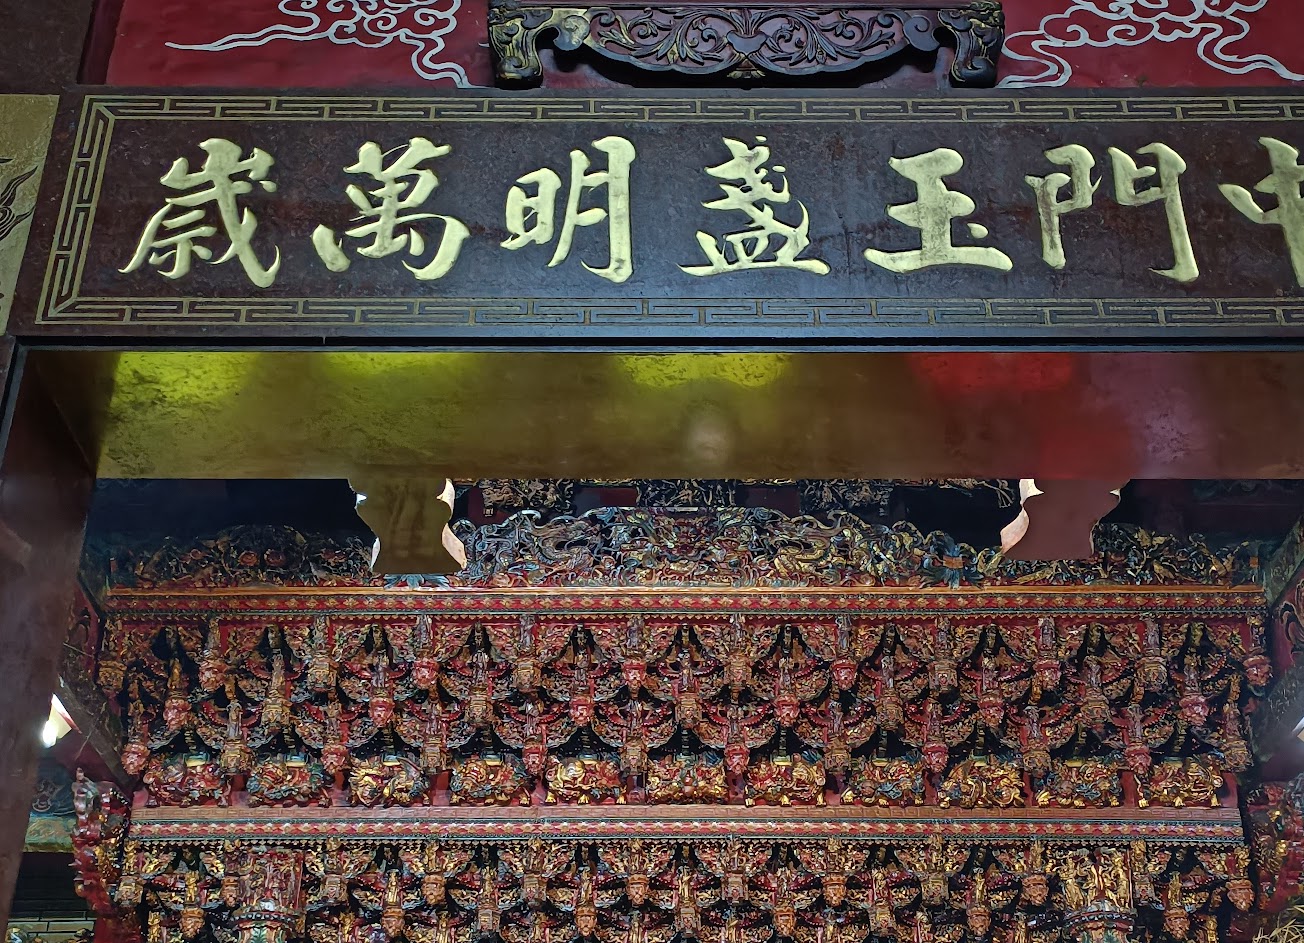 門玉盞明萬歲